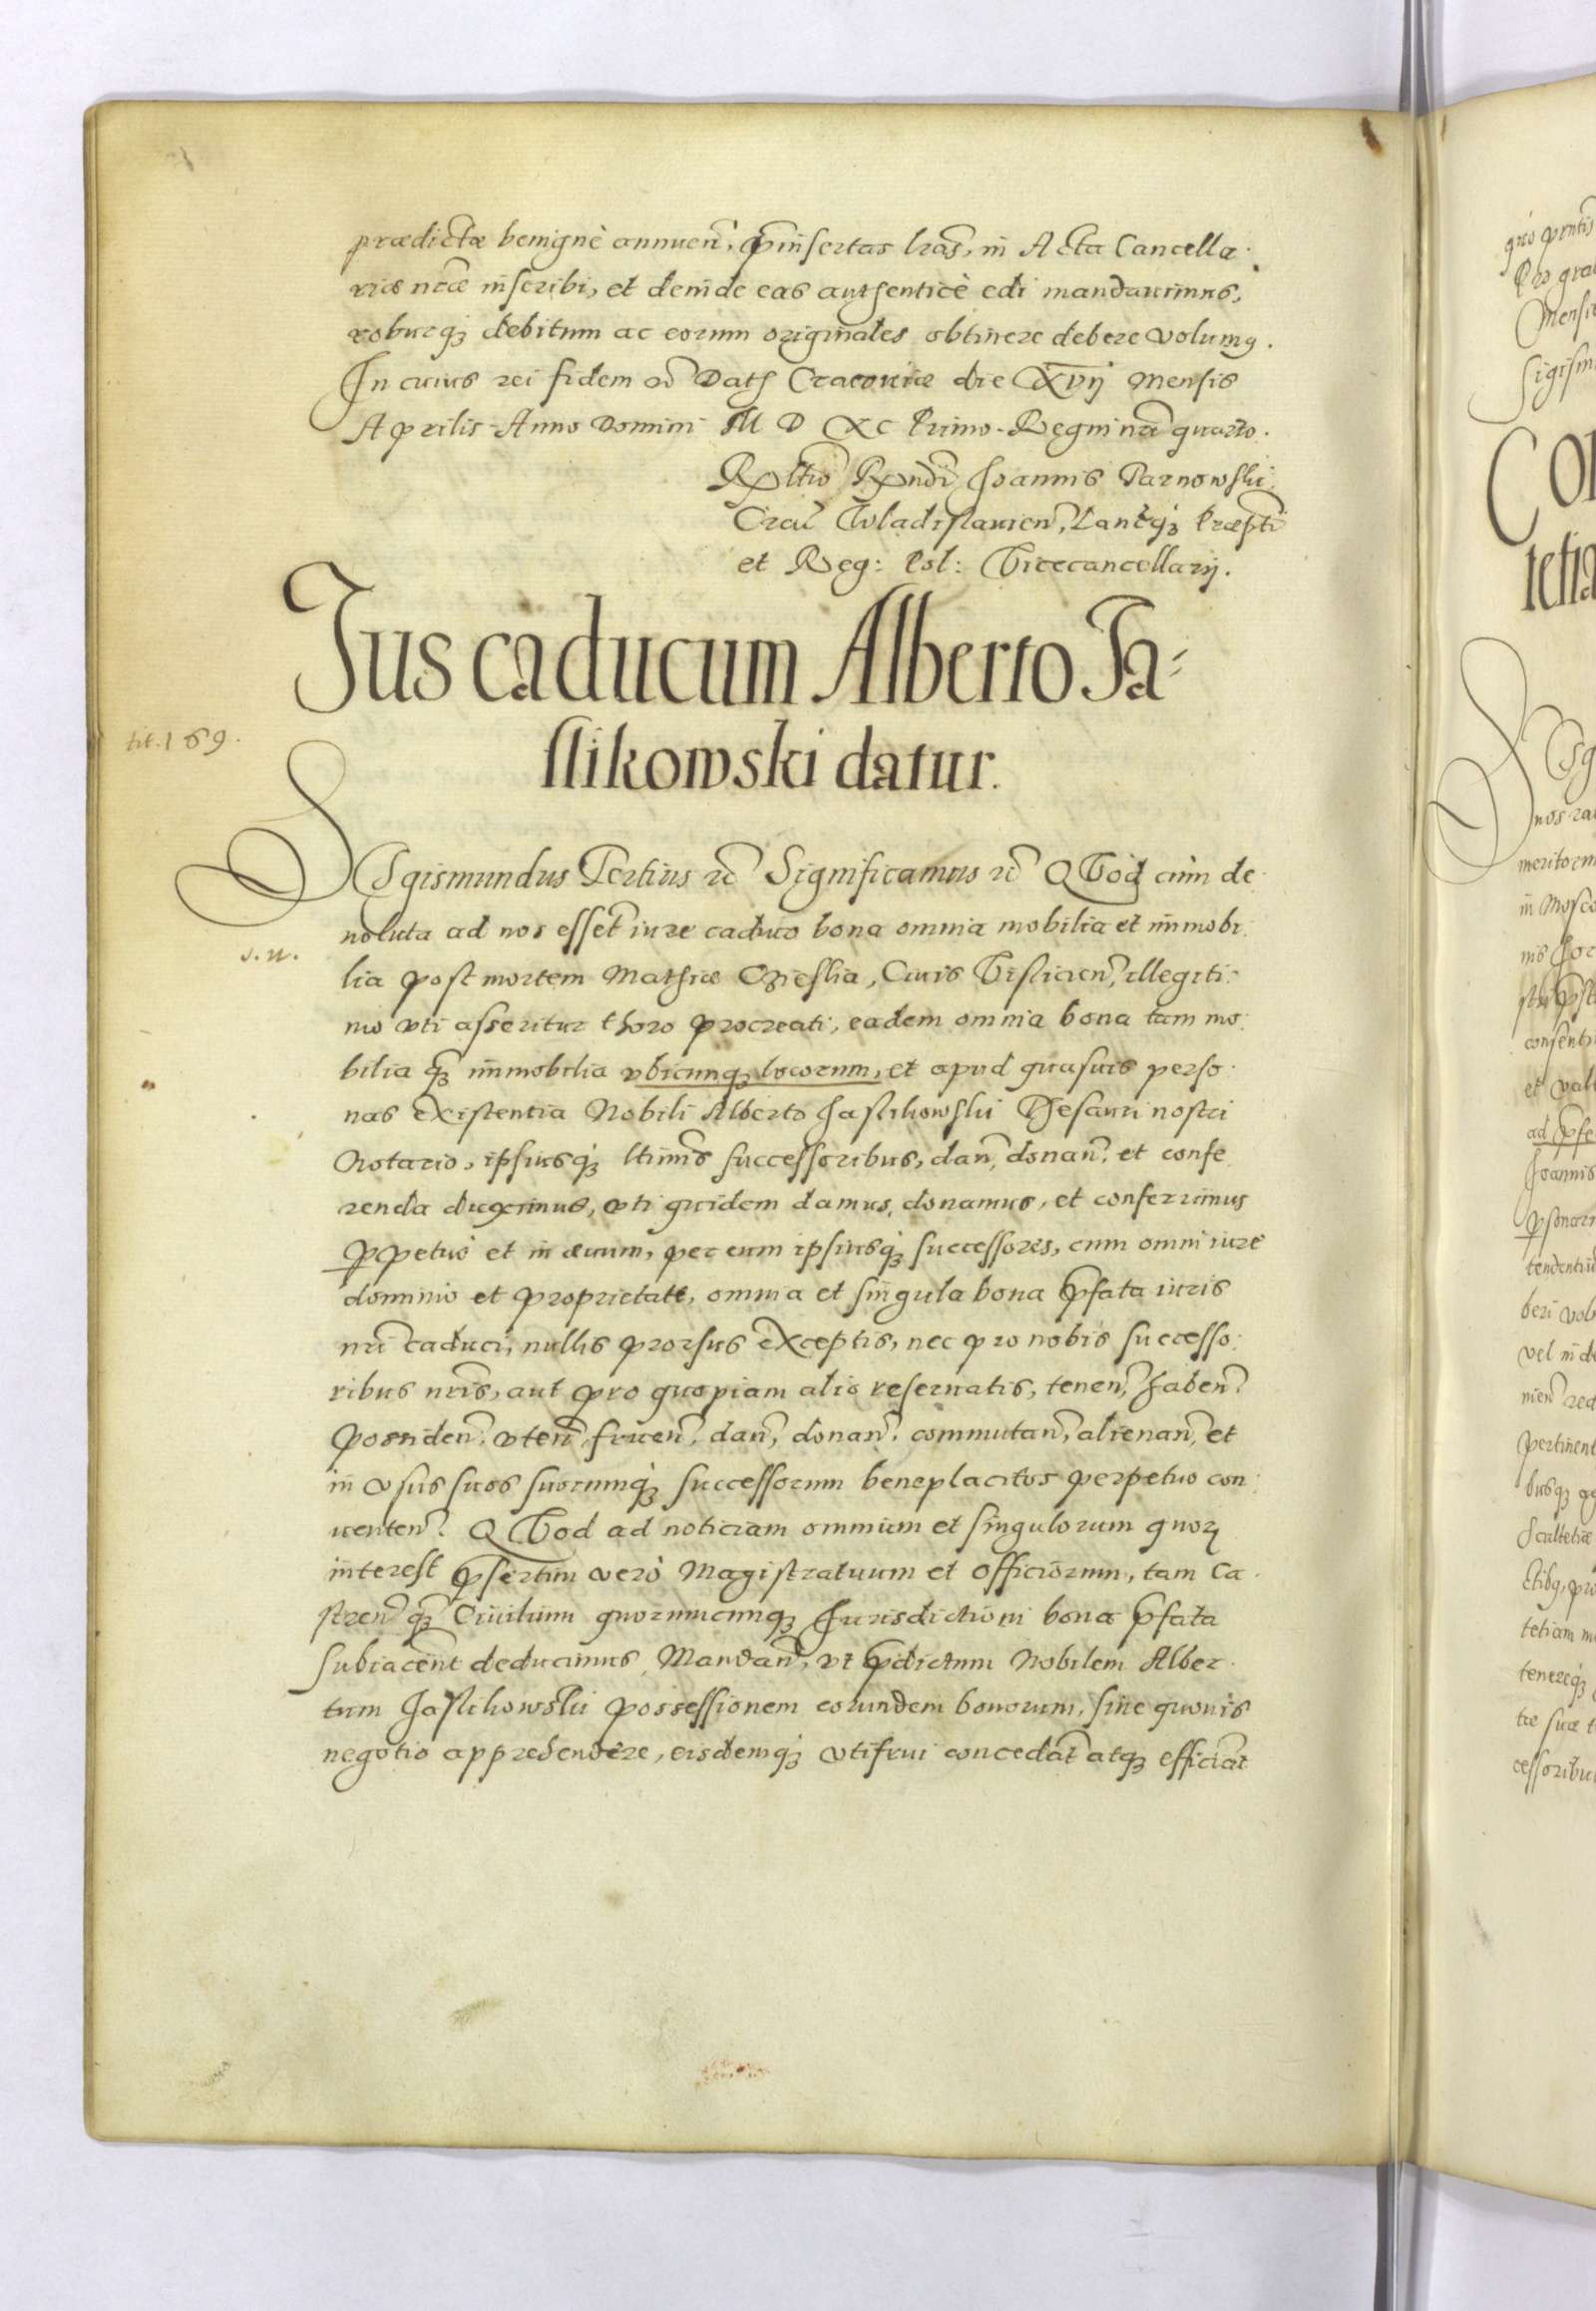 prædictæ benignè annuen̄, p̄insertas lr̄as, in Acta Cancella-
riæ nr̄æ inscribi, et deinde eas authenticè edi mandauimus,
roburq₃ debitum ac eorum originales obtinere debere volumꝰ.
In cuius rei fidem &c̄ Dat℞ Cracouiæ die XVij Mensis
Aprilis Anno Domini M D XC Primo Regni nr̄i quarto.
R̄ltio R̄ndi Joannis Tarnowski
Crac̄ Wladislauien̄, Lancq₃ Præpti
et Reg: Pol: Vicecancellarij.
Jus caducum Alberto Ja-
slikowski datur.
tit. 169.
SIgismundus Tertius &c̄ Significamus &c̄ QVod cùm de-
uoluta ad nos esset iure caduco bona omnia mobilia et immobi-
s. n.
lia post mortem Mathiæ Cieslia, Ciuis Vislicien̄, illegiti-
mo vti asseritur thoro procreati, eadem omnia bona tam mo-
bilia q̄₃ immobilia vbicunq₃ locorum, et apud quasuis perso-
nas existentia Nobili Alberto Jaslikowski Thesauri nostri
Notario, ipsiusq₃ ltimis successoribus, dan̄, donan̄, et confe
renda duximus, vti quidem damus, donamus, et conferimus
ꝑpetuò et in æuum, per eum ipsiusq₃ successores, cum omni iure
dominio et proprietate, omnia et singula bona p̄fata iuris
nr̄i caduci, nullis prorsus exceptis, nec pro nobis successo-
ribus nr̄is, aut pro quopiam alio reseruatis, tenen̄, haben̄
possiden̄, vten̄, fruen̄, dan̄, donan̄, commutan̄, alienan̄, et
in vsus suos suorumq₃ successorum beneplacitos perpetuo con-
uerten̄. QVod ad noticiam omnium et singulorum quorꝝ
interest p̄sertim verò Magistratuum et Officiorum, tam Ca-
stren̄ q̄₃ Ciuilium quorumcunq₃ Jurisdictioni bona p̄fata
subiacent deducimus, Mandan̄, vt p̄dictum Nobilem Alber-
tum Jaslikowski possessionem eorundem bonorum, sine quouis
negotio apprehendere, eisdemq₃ vtifrui concedat atq₃ efficiat